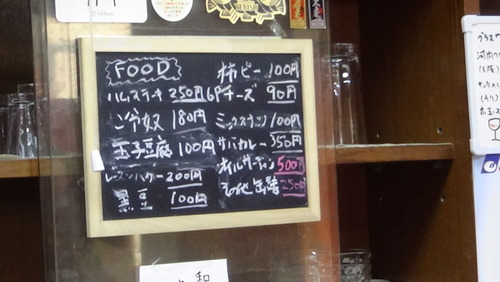 FOOD
ハムステーキ 250円
冷奴 180円
玉子豆腐 100円
レーズンバター 200円
黒豆 100円
柿ピー 100円
6Pチーズ 90円
ミックスナッツ 100円
サバカレー 350円
オイルサーディン 500円
その他缶詰 250円
和